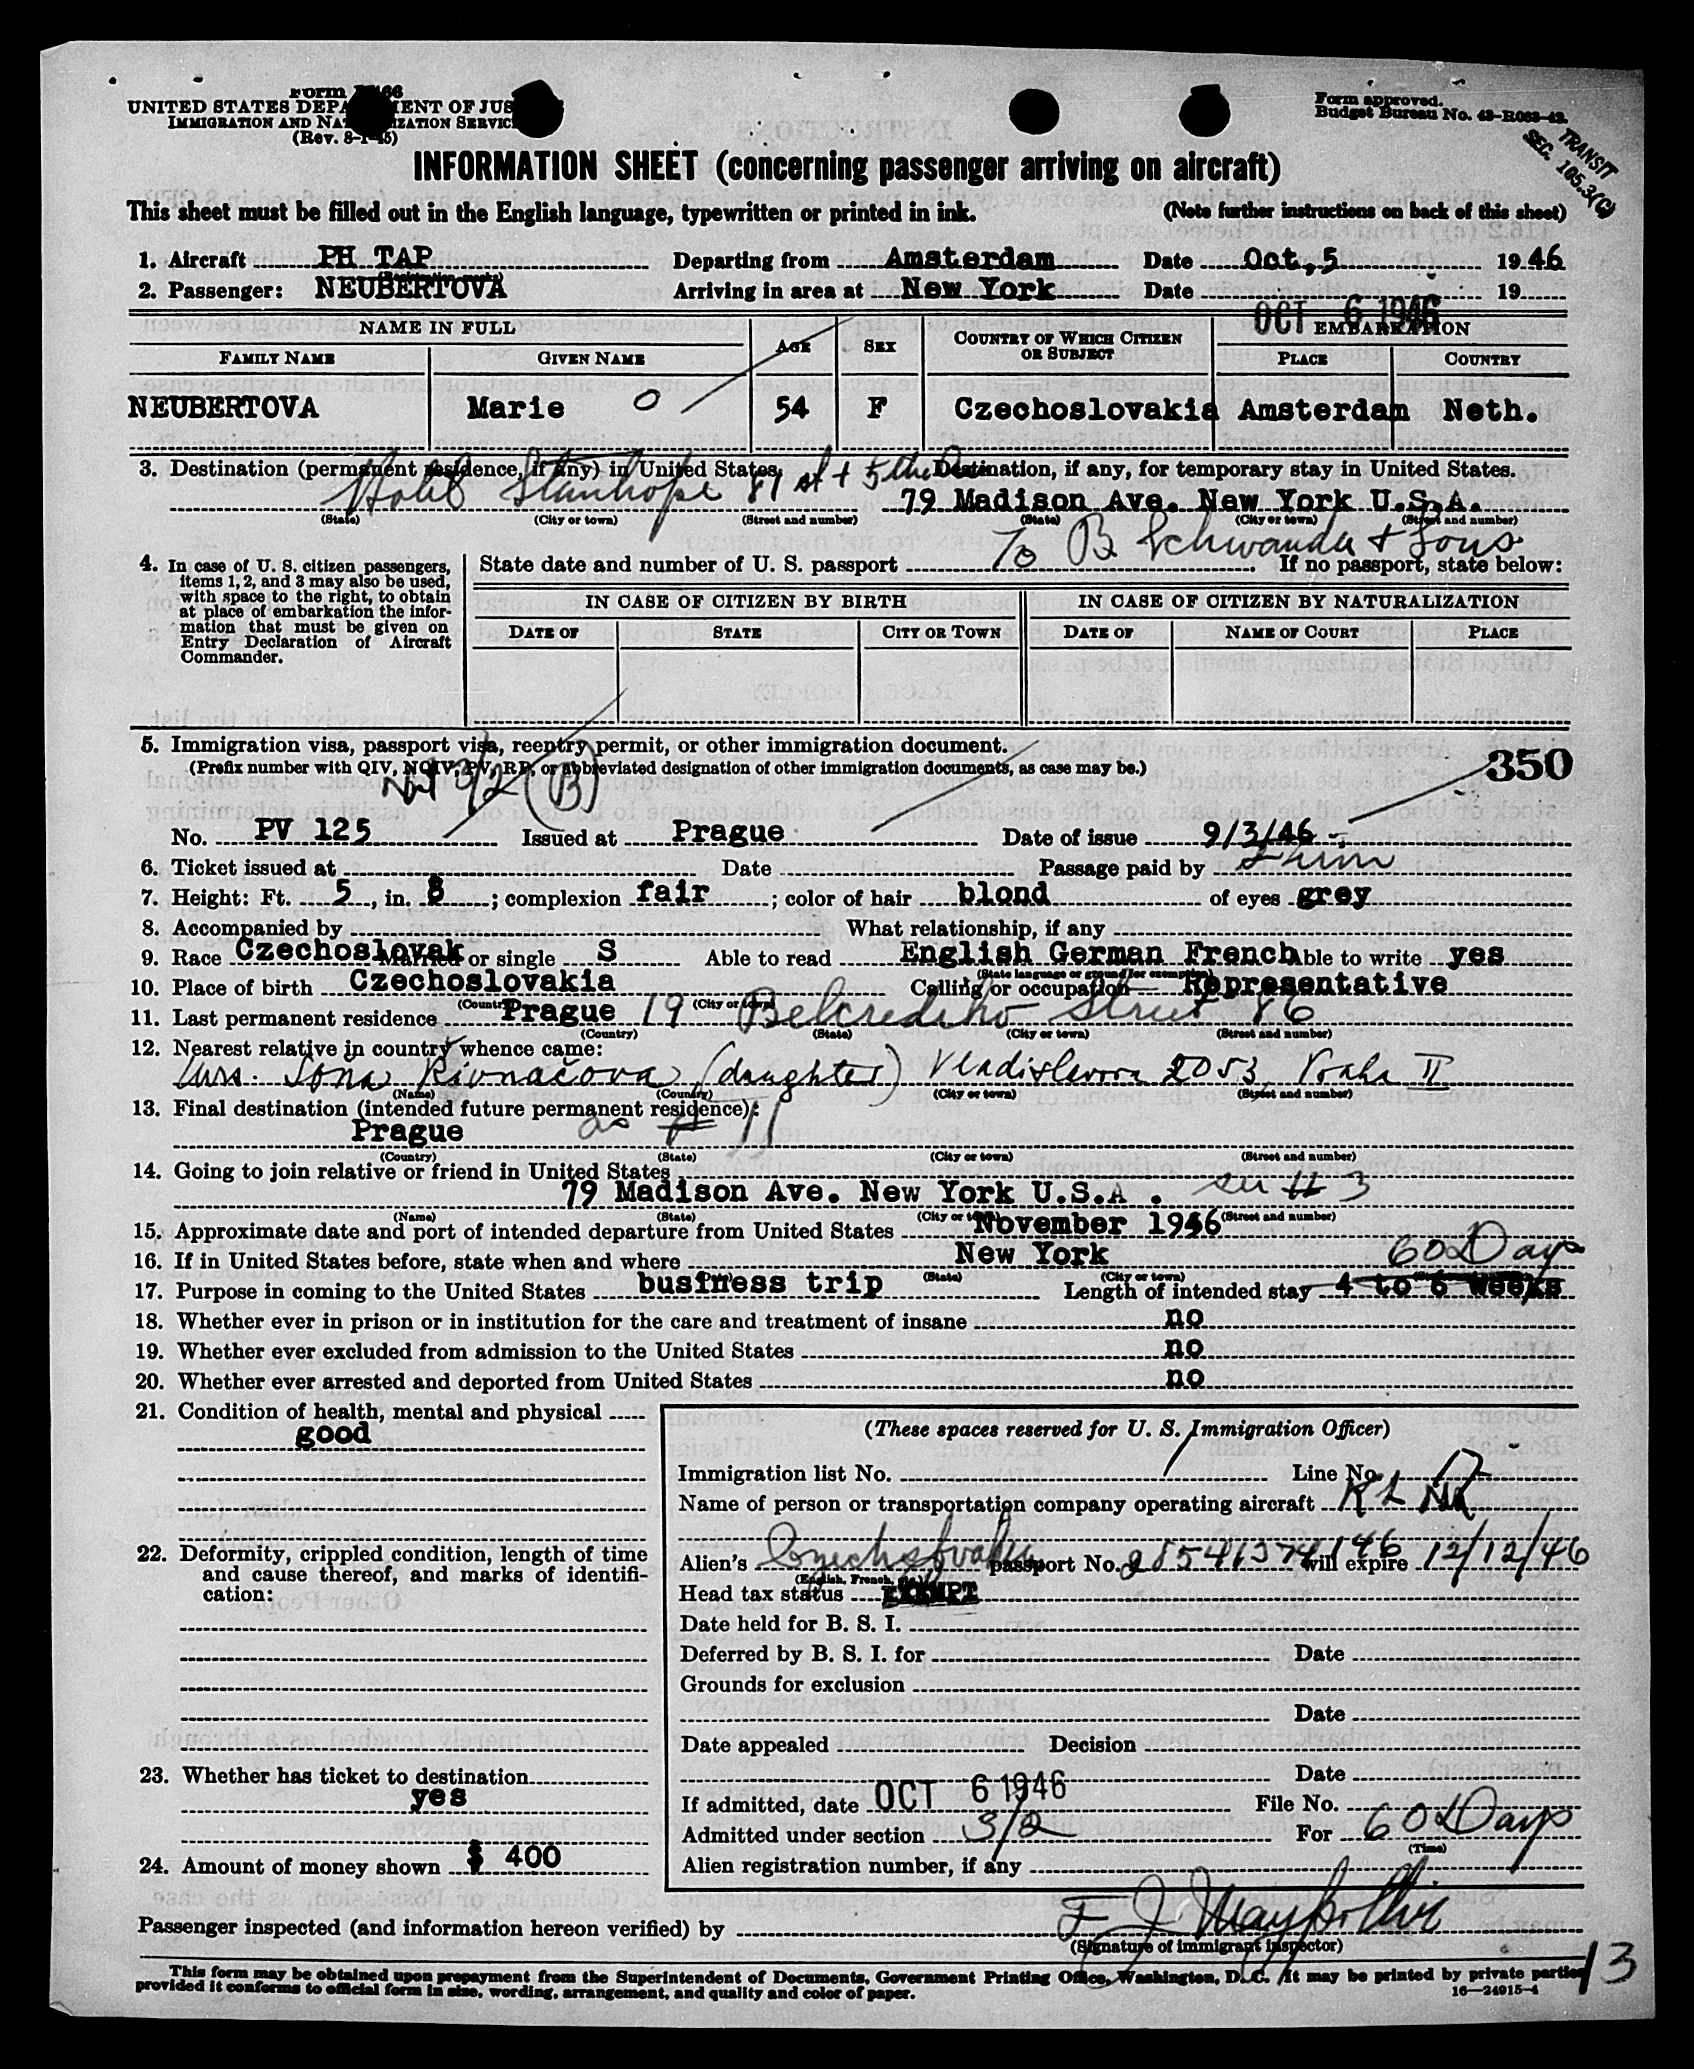 Form I-466
UNITED STATES DEPARTMENT OF JUSTICE
IMMIGRATION AND NATURALIZATION SERVICE
(Rev. 8-1-45)
Form approved.
Budget Bureau No. 43-R063-42.
TRANSIT
SEC. 105.3(C)
INFORMATION SHEET (concerning passenger arriving on aircraft)
This sheet must be filled out in the English language, typewritten or printed in ink. (Note further instructions on back of this sheet)
1. Aircraft PH TAP Departing from Amsterdam Date Oct, 5 1946
2. Passenger: NEUBERTOVA Arriving in area at New York Date OCT 6 1946 19
NAME IN FULL AGE SEX COUNTRY OF WHICH CITIZEN OR SUBJECT EMBARKATION
FAMILY NAME GIVEN NAME PLACE COUNTRY
NEUBERTOVA Marie O 54 F Czechoslovakia Amsterdam Neth.
3. Destination (permanent residence, if any) in United States. Destination, if any, for temporary stay in United States.
Hotel Stanhope 81 st + 5th Ave 79 Madison Ave. New York U.S.A.
(State) (City or town) (Street and number) (State) (City or town) (Street and number)
To B Schwanda + Sons
4. In case of U. S. citizen passengers, items 1, 2, and 3 may also be used, with space to the right, to obtain at place of embarkation the information that must be given on Entry Declaration of Aircraft Commander.
State date and number of U. S. passport If no passport, state below:
IN CASE OF CITIZEN BY BIRTH IN CASE OF CITIZEN BY NATURALIZATION
DATE OF STATE CITY OR TOWN DATE OF NAME OF COURT PLACE
5. Immigration visa, passport visa, reentry permit, or other immigration document. 350
(Prefix number with QIV, NQIV, PV, RP, or abbreviated designation of other immigration documents, as case may be.)
3/2 (B)
No. PV 125 Issued at Prague Date of issue 9/3/46
6. Ticket issued at Date Passage paid by Firm
7. Height: Ft. 5, in. 8; complexion fair; color of hair blond of eyes grey
8. Accompanied by What relationship, if any
9. Race Czechoslovak Married or single S Able to read English German French Able to write yes
(State language or ground for exemption)
10. Place of birth Czechoslovakia Calling or occupation Representative
(Country) (City or town)
11. Last permanent residence Prague 19 Belcrediho Street 86
(Country) (State) (City or town) (Street and number)
12. Nearest relative in country whence came:
Mrs. Soňa Rivnačova (daughter) Vladislavova 2053, Praha II
(Name) (Country) (City or town) (Street and number)
13. Final destination (intended future permanent residence):
Prague as # 11
(Country) (State) (City or town) (Street and number)
14. Going to join relative or friend in United States
79 Madison Ave. New York U.S.A. see # 3
(Name) (State) (City or town) (Street and number)
15. Approximate date and port of intended departure from United States November 1946
16. If in United States before, state when and where New York 60 Days
(State) (City or town)
17. Purpose in coming to the United States business trip Length of intended stay 4 to 6 weeks
18. Whether ever in prison or in institution for the care and treatment of insane no
19. Whether ever excluded from admission to the United States no
20. Whether ever arrested and deported from United States no
21. Condition of health, mental and physical
good
22. Deformity, crippled condition, length of time and cause thereof, and marks of identification:
23. Whether has ticket to destination
yes
24. Amount of money shown $ 400
(These spaces reserved for U. S. Immigration Officer)
Immigration list No. 1 Line No. 17
Name of person or transportation company operating aircraft KLM
Alien's Czechoslovakia passport No. will expire 12/12/46
(English, French, etc.)
Head tax status EXEMPT
Date held for B. S. I.
Deferred by B. S. I. for Date
Grounds for exclusion
Date
Date appealed Decision
Date
If admitted, date OCT 6 1946 File No.
Admitted under section 3/2 For 60 Days
(Time)
Alien registration number, if any
Passenger inspected (and information hereon verified) by
(Signature of immigrant inspector)
This form may be obtained upon prepayment from the Superintendent of Documents, Government Printing Office, Washington, D. C. It may be printed by private parties
provided it conforms to official form in size, wording, arrangement, and quality and color of paper.
16—24915-4
13